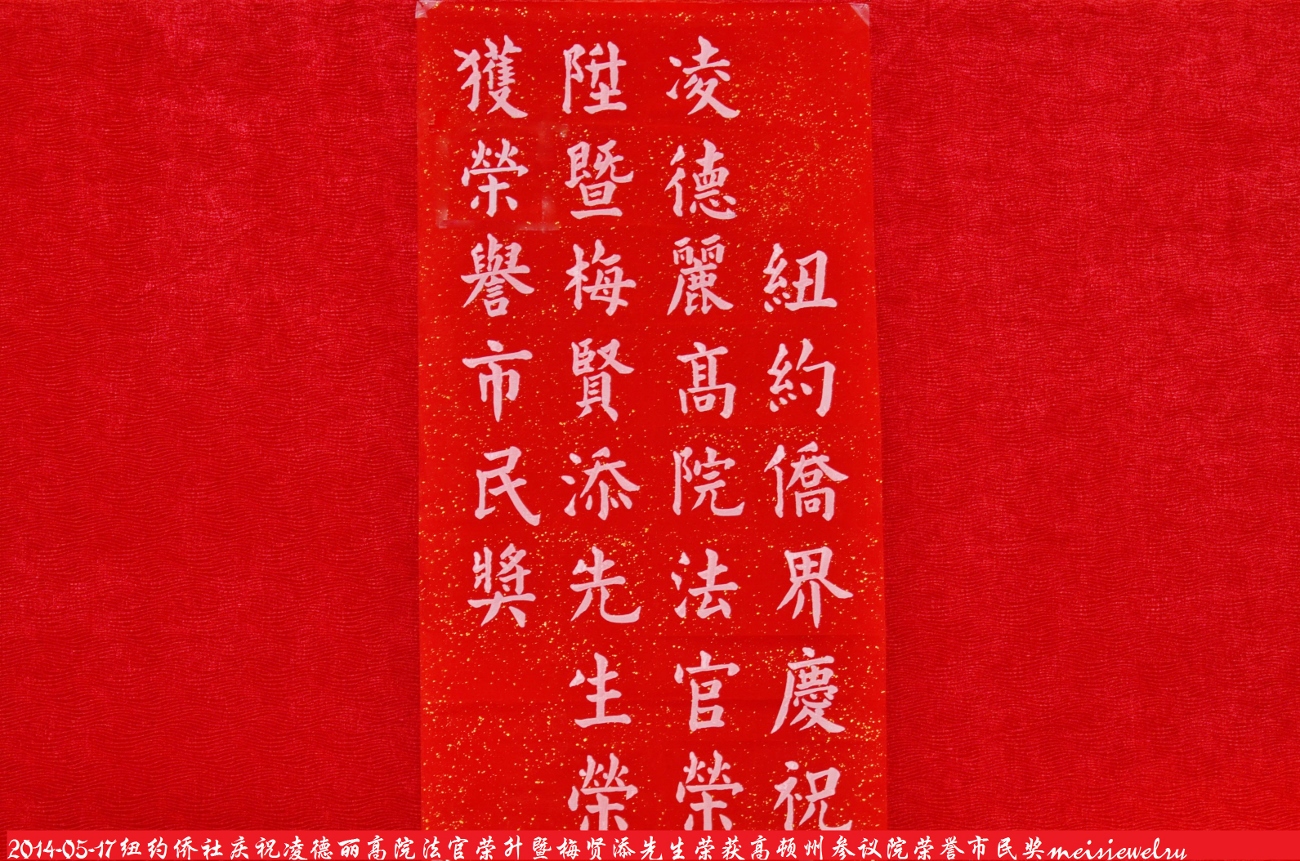 紐約僑界慶祝
凌德麗髙院法官榮
陞暨梅賢添先生榮
獲榮譽市民奬
2014-05-17纽约侨社庆祝凌德丽高院法官荣升暨梅贤添先生荣获高顿州参议院荣誉市民奖meisijewelry